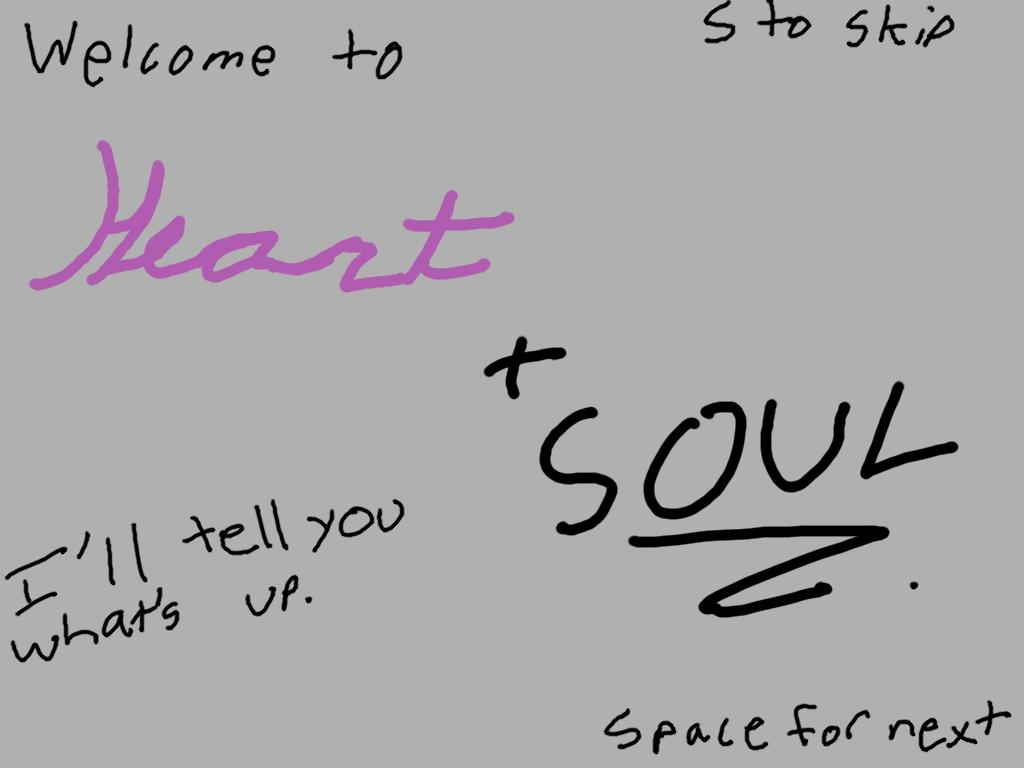 Welcome to
S to skip
Heart
+
SOUL
I'll tell you
what's up.
Space for next